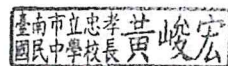 臺南市立忠孝
國民中學校長黃峻宏